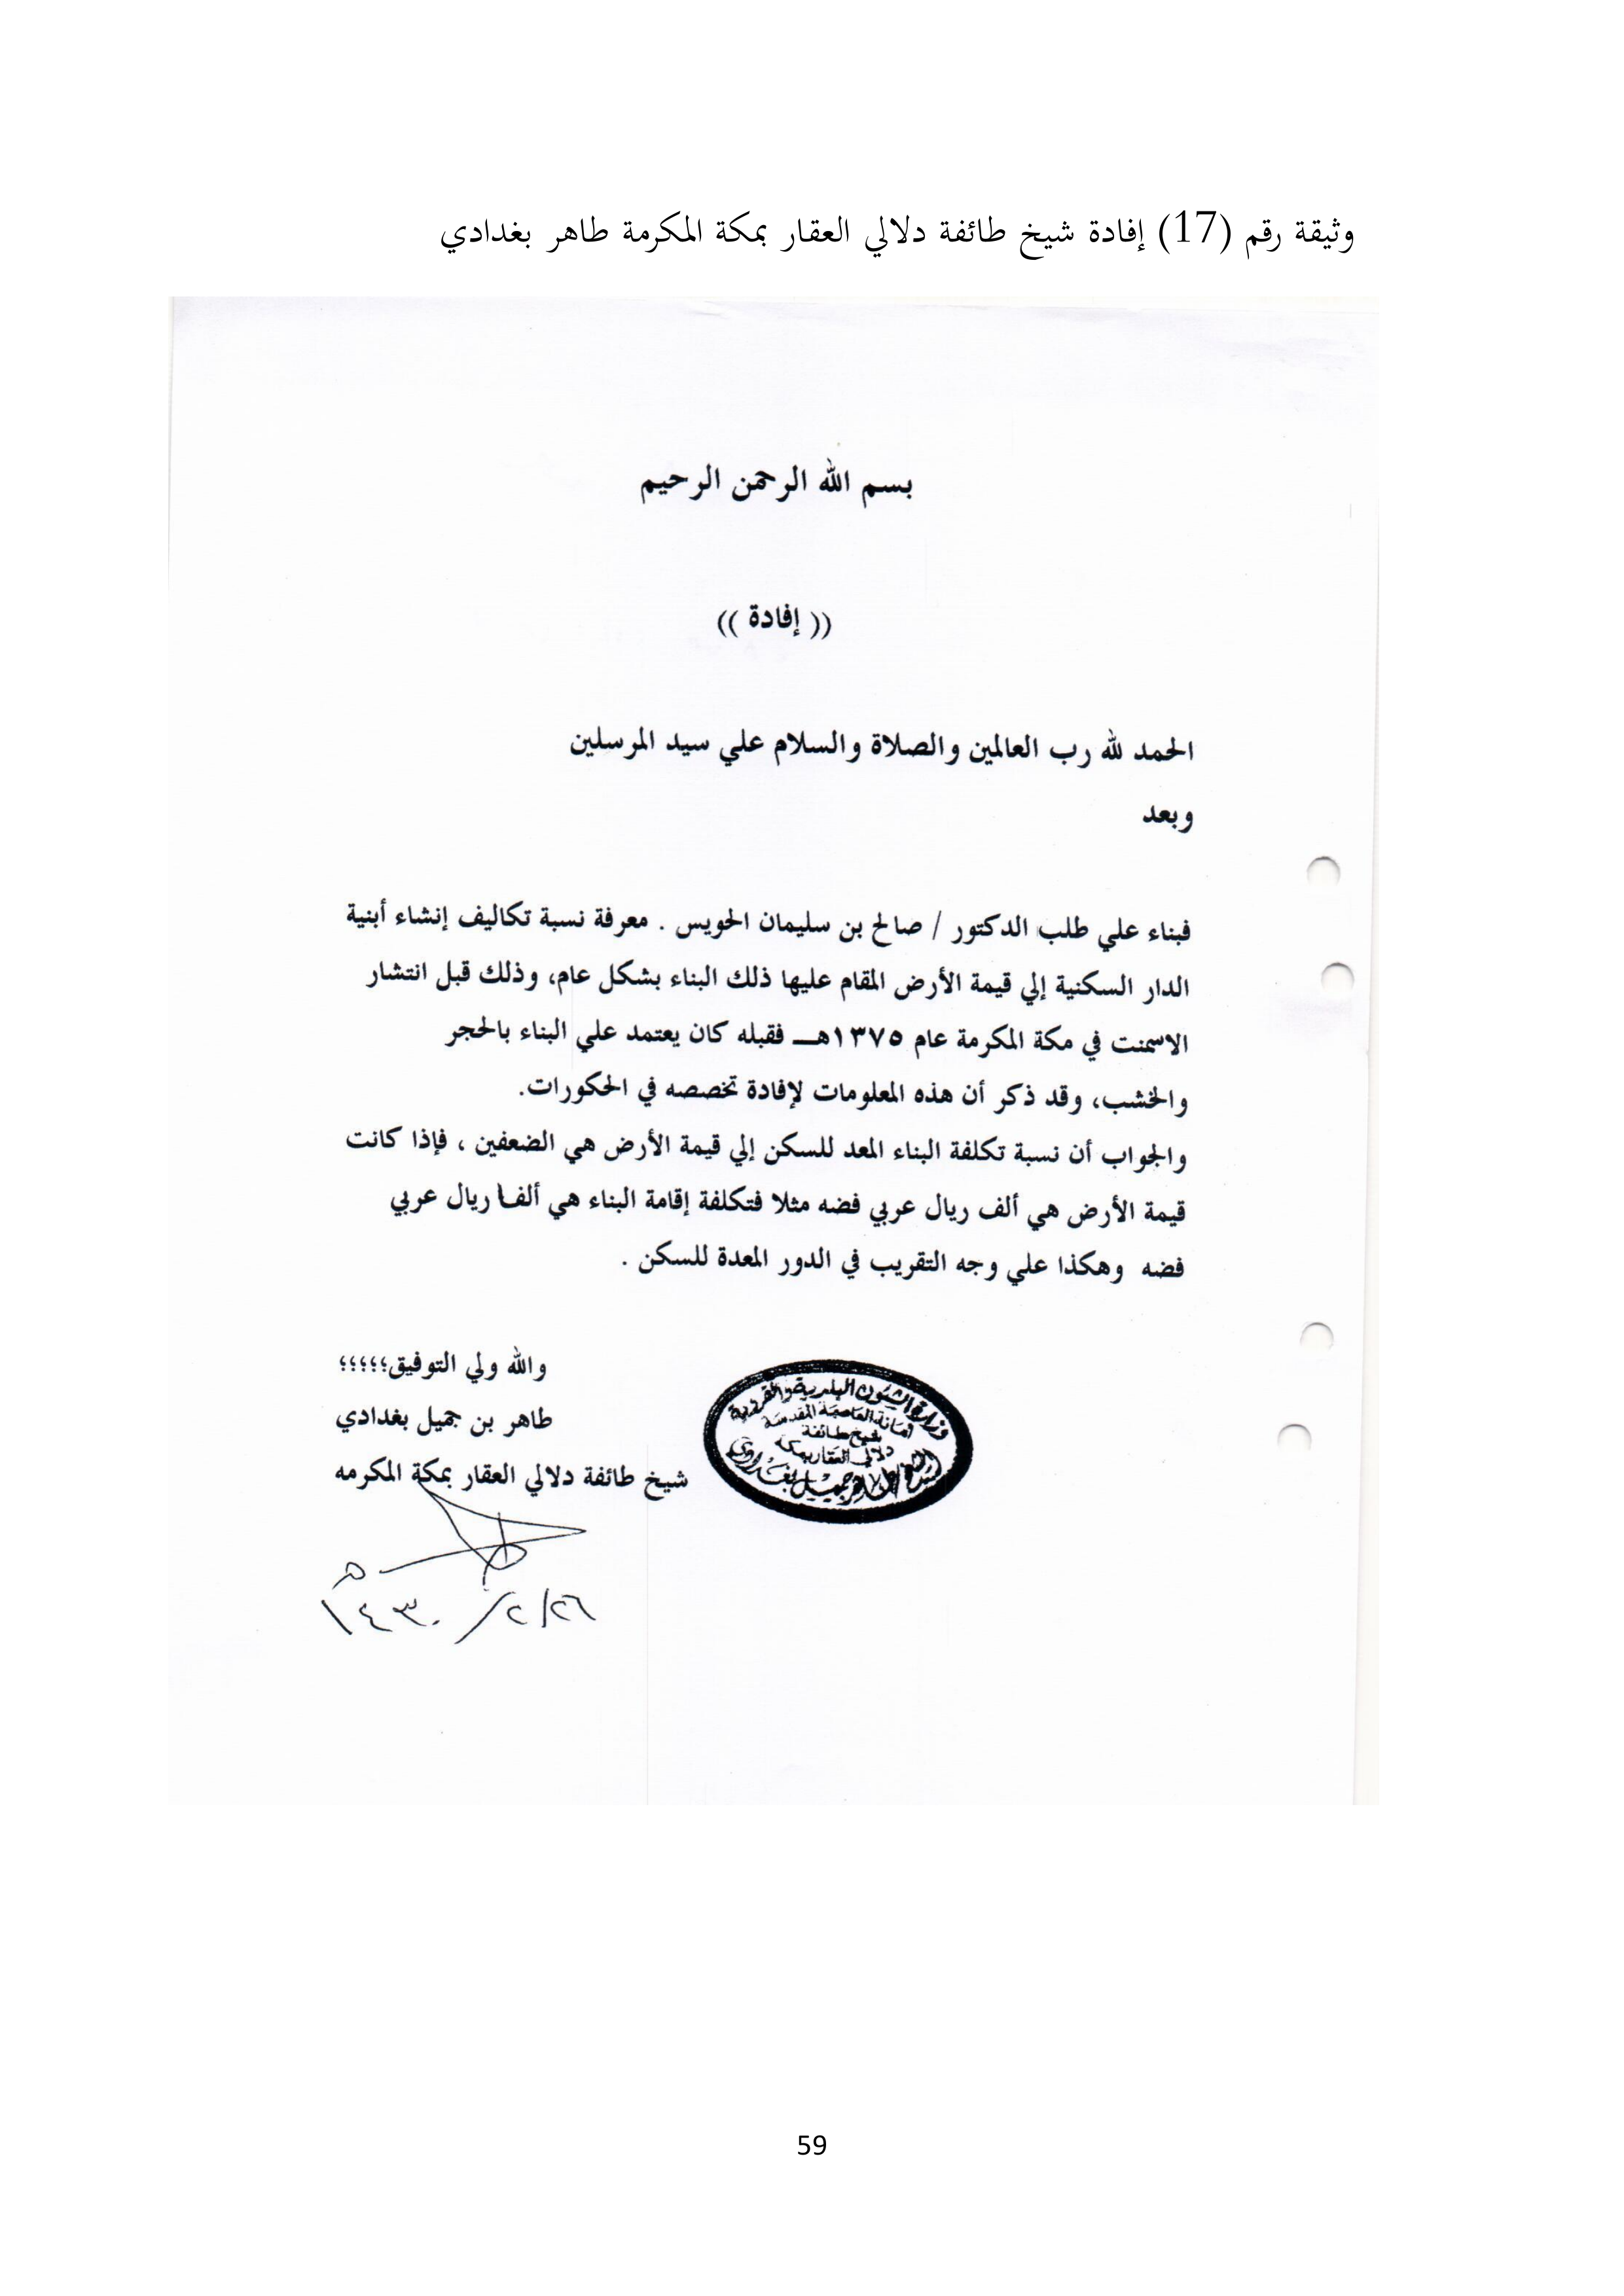 وثيقة رقم (17) إفادة شيخ طائفة دلالي العقار بمكة المكرمة طاهر بغدادي
بسم الله الرحمن الرحيم
(( إفادة ))
الحمد لله رب العالمين والصلاة والسلام علي سيد المرسلين
وبعد
فبناء علي طلب الدكتور / صالح بن سليمان الحويس . معرفة نسبة تكاليف إنشاء أبنية
الدار السكنية إلي قيمة الأرض المقام عليها ذلك البناء بشكل عام، وذلك قبل انتشار
الاسمنت في مكة المكرمة عام ١٣٧٥هـ فقبله كان يعتمد علي البناء بالحجر
والخشب، وقد ذكر أن هذه المعلومات لإفادة تخصصه في الحكورات.
والجواب أن نسبة تكلفة البناء المعد للسكن إلي قيمة الأرض هي الضعفين ، فإذا كانت
قيمة الأرض هي ألف ريال عربي فضه مثلا فتكلفة إقامة البناء هي ألفا ريال عربي
فضه وهكذا علي وجه التقريب في الدور المعدة للسكن .
والله ولي التوفيق؛؛؛؛؛
طاهر بن جميل بغدادي
شيخ طائفة دلالي العقار بمكة المكرمه
وزارة الشئون البلدية والقروية
أمانة العاصمة المقدسة
شيخ طائفة
دلالي العقار بمكة
طاهر جميل بغدادي
٢٦/٢/١٤٣٠هـ
59